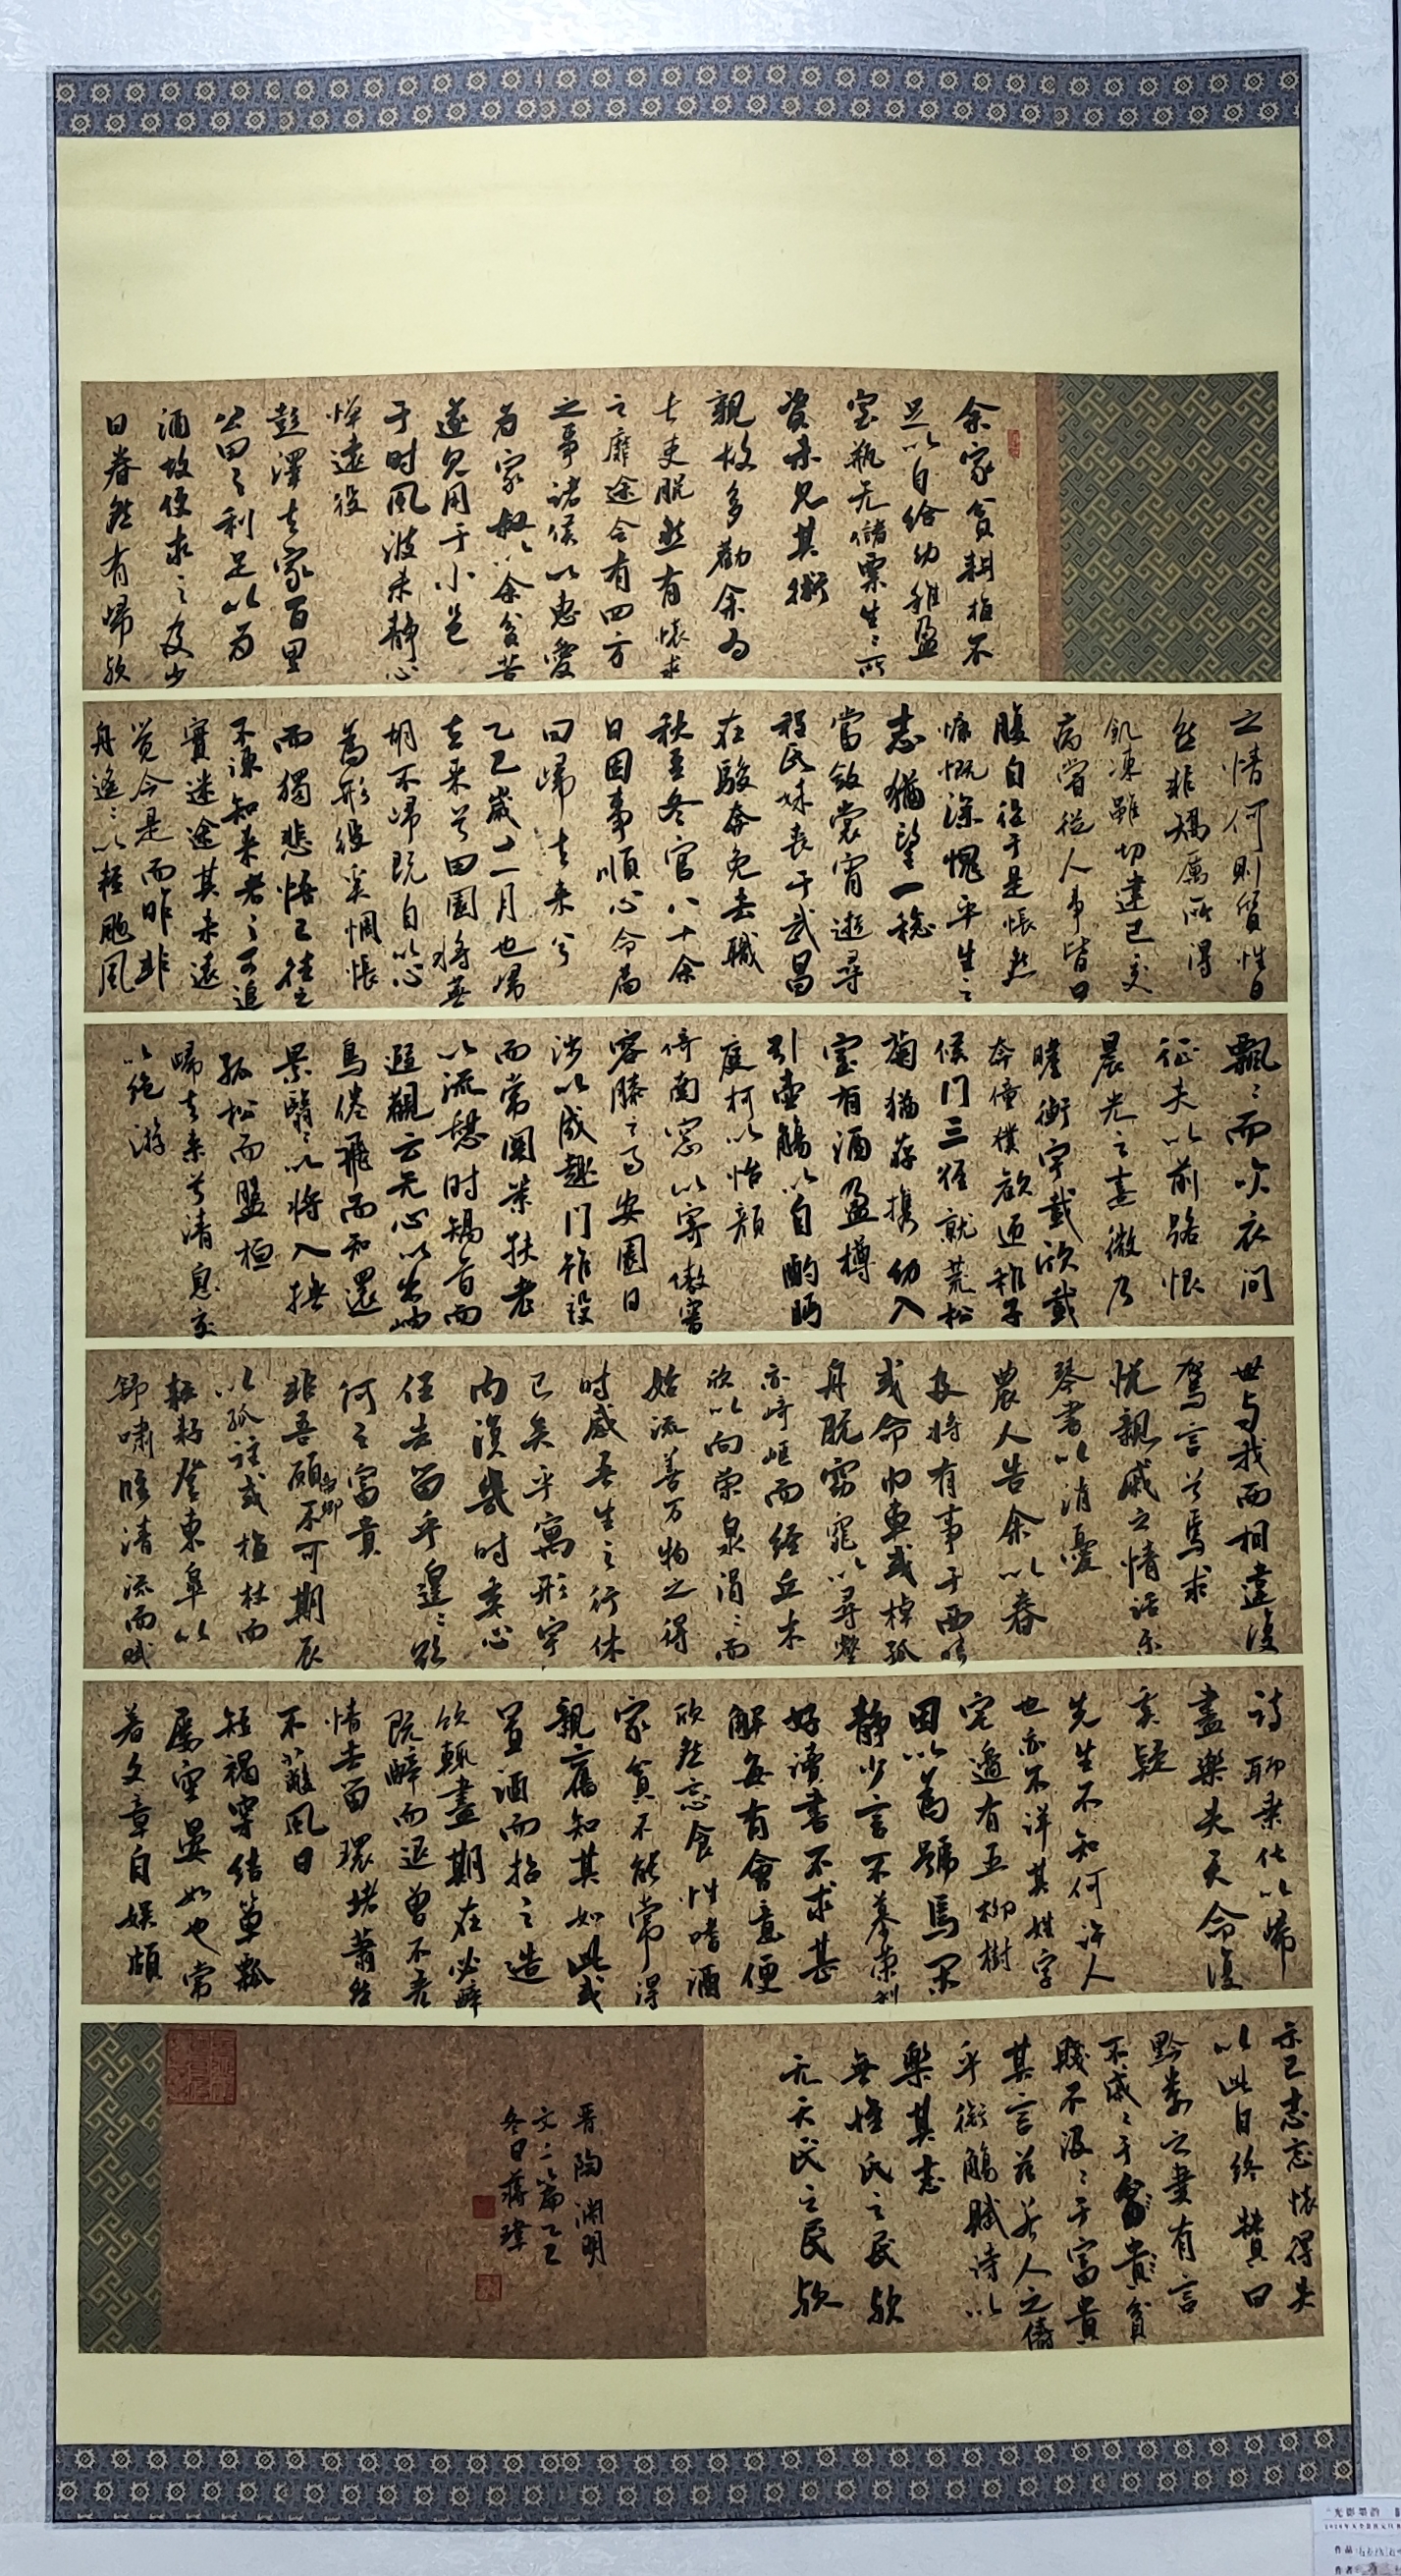 余家貧耕植不
足以自给幼稚盈
室瓶无儲粟生〻所
資未見其術
親故多勸余为
長吏脱然有懷求
之靡途会有四方
之事諸侯以惠愛
为家叔以余貧苦
遂見用于小邑
于时風波未静心
惮遠役
彭澤去家百里
公田之利足以为
酒故便求之及少
日眷然有歸欤
之情何則質性自
然非矯厲所得
飢凍雖切違己交
病嘗從人事皆口
腹自役于是悵然
慷慨深愧平生之
志猶望一稔
當斂裳宵逝尋
程氏妹喪于武昌
在駿奔免去職
秋至冬官八十余
日因事順心命篇
曰歸去来兮
乙巳歲十一月也歸
去来兮田園将蕪
胡不歸既自以心
為形役奚惆悵
而獨悲悟已往之
不諫知来者之可追
實迷途其未遠
覚今是而昨非
舟遙〻以輕颺風
飄〻而吹衣问
征夫以前路恨
晨光之熹微乃
瞻衡宇載欣載
奔僮僕歓迎稚子
候门三徑就荒松
菊猶存携幼入
室有酒盈樽
引壶觴以自酌眄
庭柯以怡顔
倚南窓以寄傲審
容膝之易安園日
涉以成趣门雖設
而常関策扶老
以流憩时矯首而
遐觀云无心以出岫
鳥倦飛而知還
景翳〻以将入撫
孤松而盤桓
歸去来兮请息交
以绝游
世与我而相違復
駕言兮焉求
悦親戚之情話乐
琴書以消憂
農人告余以春
及将有事于西畴
或命巾車或棹孤
舟既窈窕以尋壑
亦崎岖而经丘木
欣以向荣泉涓〻而
始流善万物之得
时感吾生之行休
已矣乎寓形宇
内復幾时奚心
任去留乎遑〻欲
何之富貴
非吾願帝鄉不可期辰
以孤往或植杖而
耘耔登東皋以
舒嘯临清流而賦
诗聊乘化以歸
盡樂夫天命復
奚疑
先生不知何许人
也亦不详其姓字
宅邊有五柳樹
因以為號焉閑
静少言不慕榮利
好讀書不求甚
解每有會意便
欣然忘食性嗜酒
家貧不能常得
親舊知其如此或
置酒而招之造
飲輒盡期在必醉
既醉而退曾不吝
情去留環堵蕭然
不蔽風日
短褐穿结簞瓢
屡空晏如也常
著文章自娱頗
示己志忘懷得失
以此自终贊曰
黔婁之妻有言
不戚〻于貧
賤不汲〻于富貴
其言兹若人之儔
乎銜觴賦诗以
樂其志
無懷氏之民欤
无天氏之民欤
晋陶渊明
文二篇乙巳
冬日蔣瑋